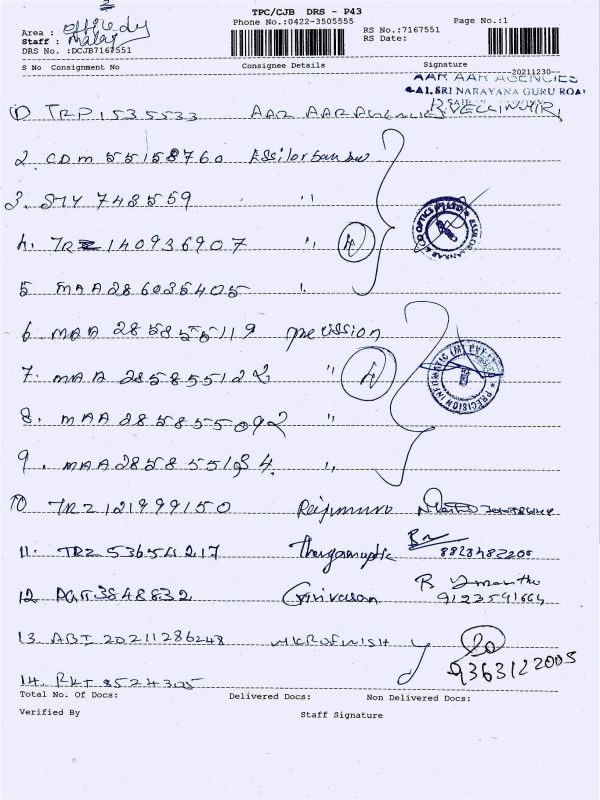 TPC/CJB DRS - P43
Phone No.:0422-3505555
Page No.:1
Area :
Staff : Malaj
DRS No. :DCJB7167551
RS No.:7167551
RS Date:
S No Consignment No Consignee Details Signature
20211230
AAR AAR AGENCIES
SRI NARAYANA GURU ROAD
1) TRP 1535533 AAR AAR AGENCIES
2. CDM 55158760 Essilor
3. SMY 748559 "
4. TRZ 140936907 " 4
5. MAA 286035405 "
6. MAA 285855119 precission
7. MAA 285855122 " 4
8. MAA 285855092
9. MAA 285855134 "
PRECISION INFORMATIC (M) PVT
10 TRZ 121999150
11. TRZ 53654217
12 PGT 3848832 Srinivasan
9123591664
13. ABI 20211286248 MICROFINISH
9363122003
14. RKT 8524305
Total No. Of Docs: Delivered Docs: Non Delivered Docs:
Verified By Staff Signature